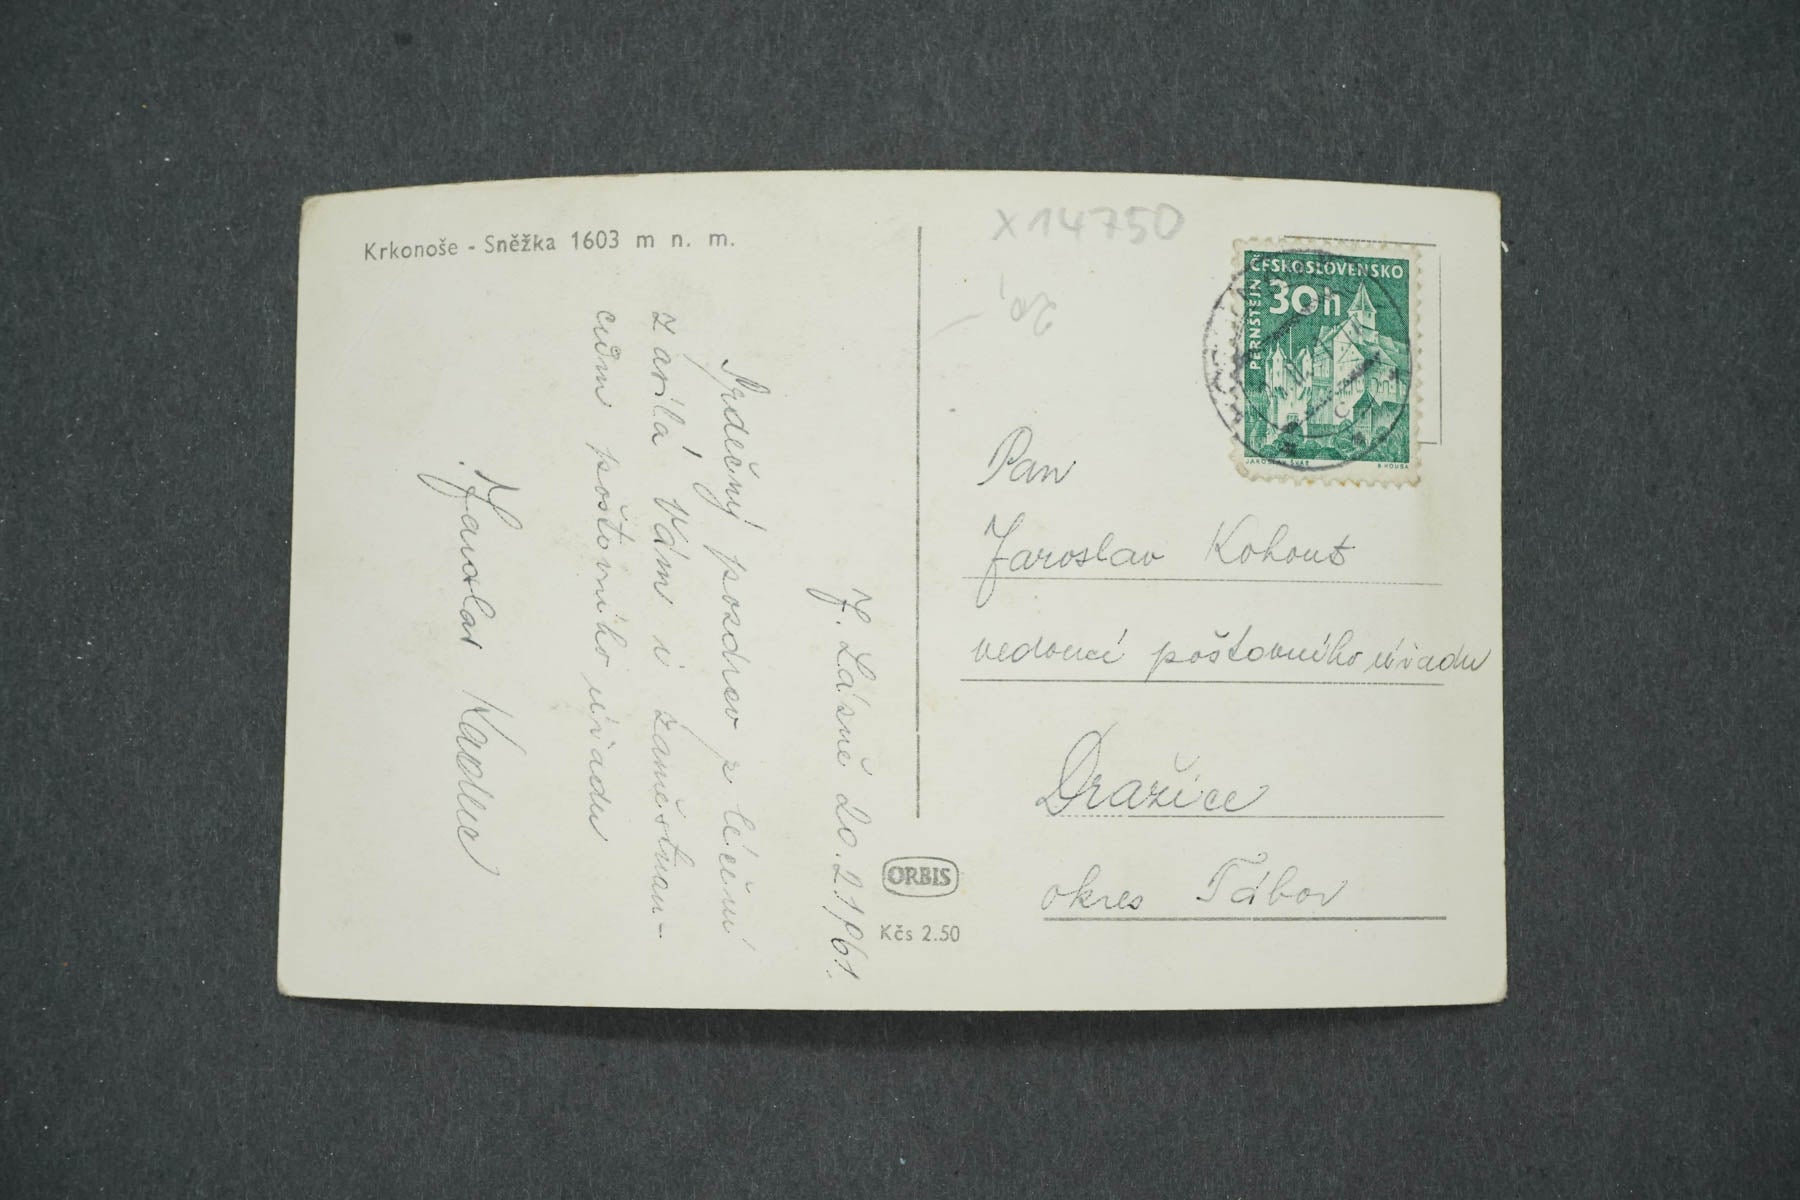 Krkonoše - Sněžka 1603 m n. m.
J. Lázně 20.2.1961.
Srdečný pozdrav z léčení
zasílá Vám i zaměstnan-
cům poštovního úřadu
Jaroslav Kadlec
x14750
20,
ČESKOSLOVENSKO
30h
PERNŠTEJN
JAROSLAV ŠVÁB
B. HOUSA
Pan
Jaroslav Kohout
vedoucí poštovního úřadu
Dražice
okres Tábor
ORBIS
Kčs 2.50